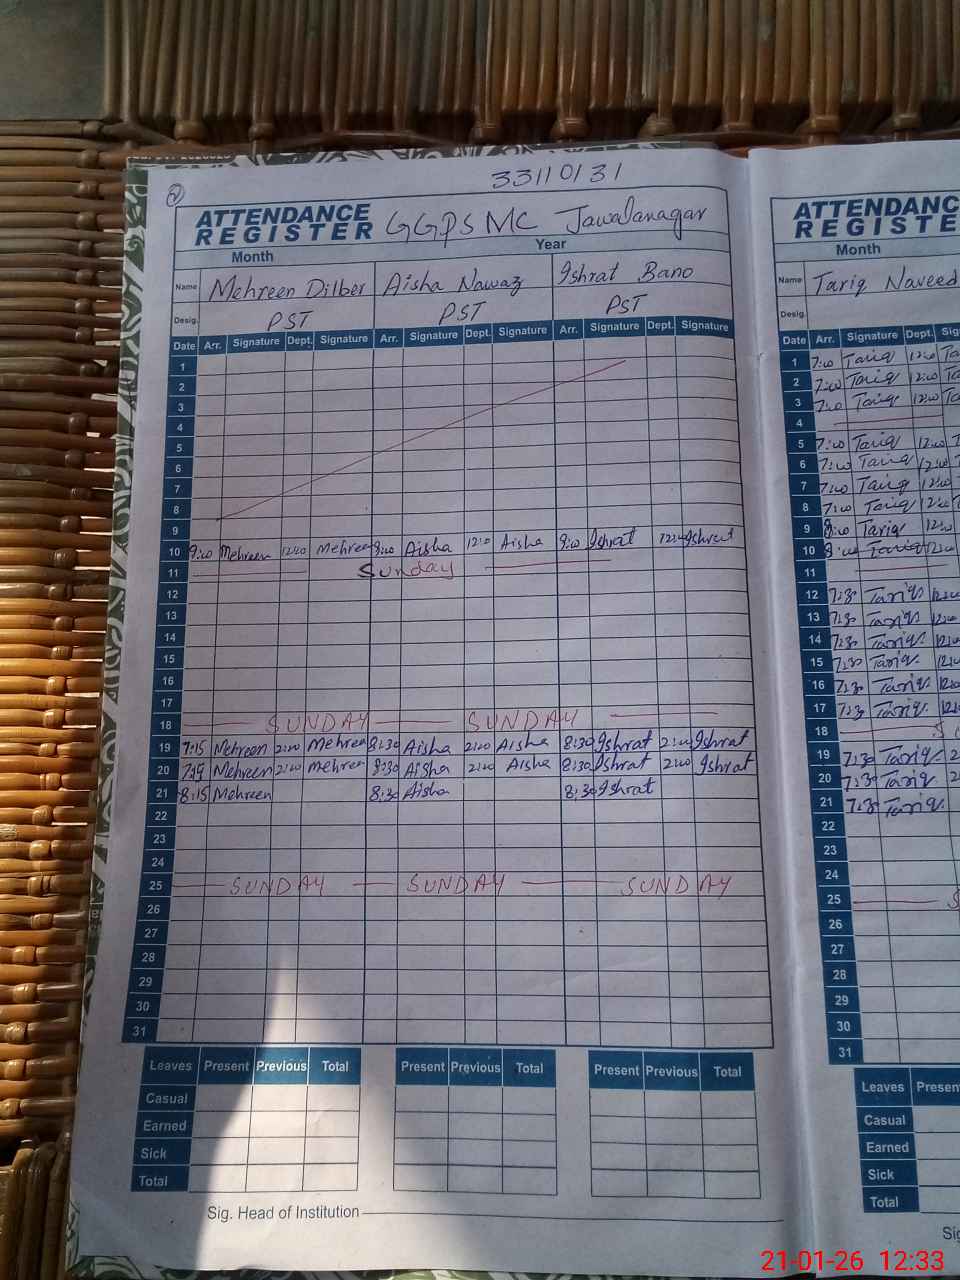 33110131
2
ATTENDANCE REGISTER GGPS MC Jawalanagar
Month Year
Name Mehreen Dilber Aisha Nawaz Ishrat Bano
Desig. PST PST PST
Date Arr. Signature Dept. Signature Arr. Signature Dept. Signature Arr. Signature Dept. Signature
1
2
3
4
5
6
7
8
9
10 9:00 Mehreen 12:00 Mehreen 9:00 Aisha 12:00 Aisha 9:00 Ishrat 12:00 Ishrat
11 Sunday
12
13
14
15
16
17
18 SUNDAY SUNDAY
19 7:15 Mehreen 2:00 Mehreen 8:30 Aisha 2:00 Aisha 8:30 Ishrat 2:00 Ishrat
20 7:15 Mehreen 2:00 Mehreen 8:30 Aisha 2:00 Aisha 8:30 Ishrat 2:00 Ishrat
21 8:15 Mehreen 8:30 Aisha 8:30 Ishrat
22
23
24
25 SUNDAY SUNDAY SUNDAY
26
27
28
29
30
31
Leaves Present Previous Total Present Previous Total Present Previous Total
Casual
Earned
Sick
Total
Sig. Head of Institution
ATTENDANC
REGISTE
Month
Name Tariq Naveed
Desig.
Date Arr. Signature Dept. Sig
1 7:00 Tariq 12:00 Ta
2 7:00 Tariq 12:00 Ta
3 7:00 Tariq 12:00 Ta
4
5 7:00 Tariq 12:00 T
6 7:00 Tariq 12:00
7 7:00 Tariq 12:00
8 7:00 Tariq 12:00
9 8:00 Tariq 12:00
10 8:00 Tariq 12:00
11
12 7:30 Tariq 12:00
13 7:30 Tariq 12:00
14 7:30 Tariq 12:00
15 7:30 Tariq 12:00
16 7:30 Tariq 12:00
17 7:30 Tariq 12:00
18 S
19 7:30 Tariq 2
20 7:30 Tariq 2
21 7:30 Tariq
22
23
24
25 S
26
27
28
29
30
31
Leaves Present
Casual
Earned
Sick
Total
Sig
21-01-26 12:33